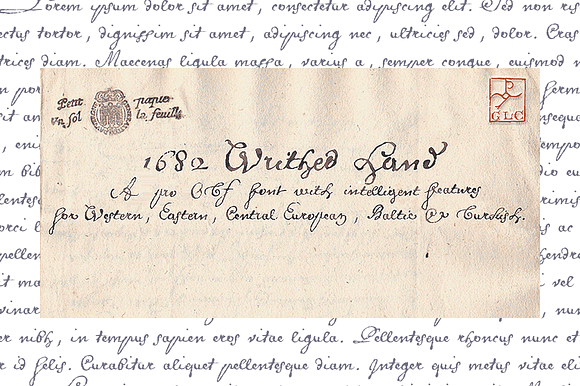 Lorem ipsum dolor sit amet, consectetur adipiscing elit. Sed non ris
ectus tortor, dignissim sit amet, adipiscing nec, ultricies sed, dolor. Cras
trices diam. Maecenas ligula massa, varius a, semper congue, euismod n
Petit papier
Vn sol la feuille
GLC
1682 Writhed Hand
A pro OTF font with intelligent features
for Western, Eastern, Central European, Baltic & Turkish.
er nibh, in tempus sapien eros vitae ligula. Pellentesque rhoncus nunc et
r id felis. Curabitur aliquet pellentesque diam. Integer quis metus vitae elit